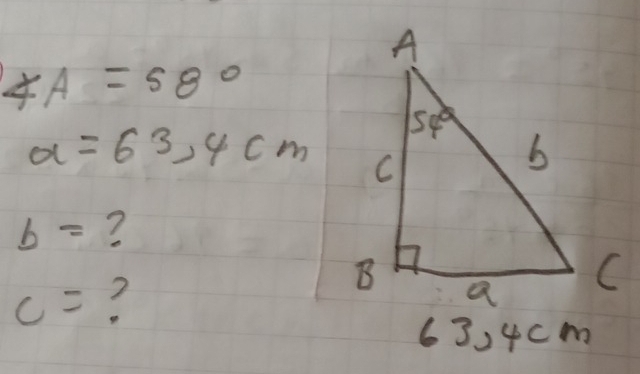 ∡A = 58°
a = 63,4cm
b = ?
c = ?
A
54°
c
b
B
C
a
63,4cm